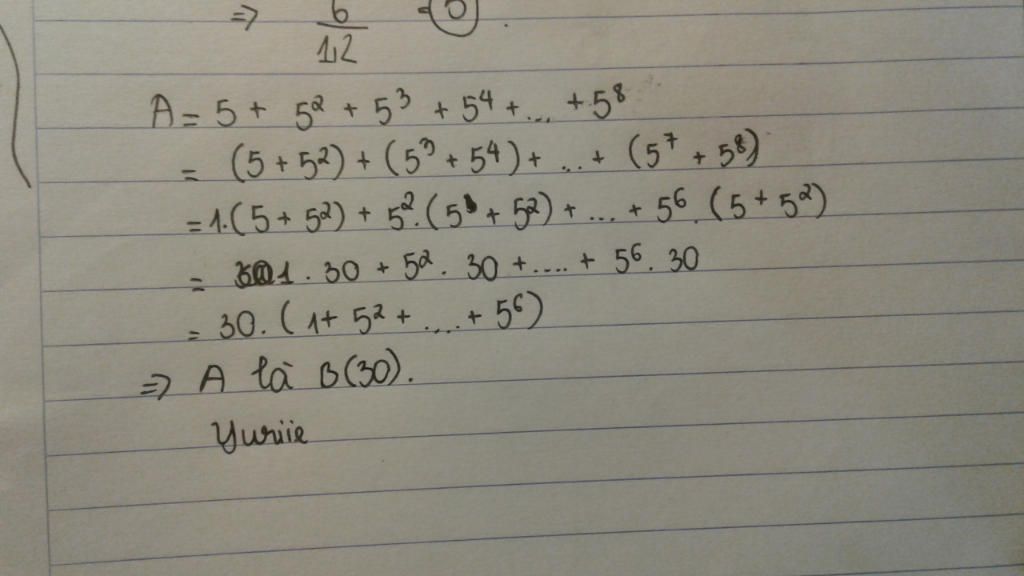 ⇒ 6/1,2 = 0.
A = 5 + 5² + 5³ + 5⁴ + ... + 5⁸
= (5 + 5²) + (5³ + 5⁴) + ... + (5⁷ + 5⁸)
= 1.(5 + 5²) + 5².(5 + 5²) + ... + 5⁶.(5 + 5²)
= 1 . 30 + 5² . 30 + .... + 5⁶ . 30
= 30. (1 + 5² + .... + 5⁶)
⇒ A là B(30).
Yuriie